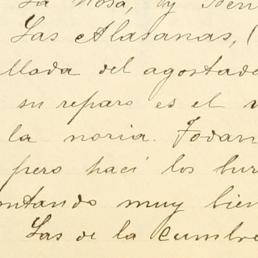 La Rosa, y Ben
Las Alasanas, (
llada del agostade
su reparo es el
la noria. Todan
pero hací los bur
ontando muy bien
Las de la cumbre